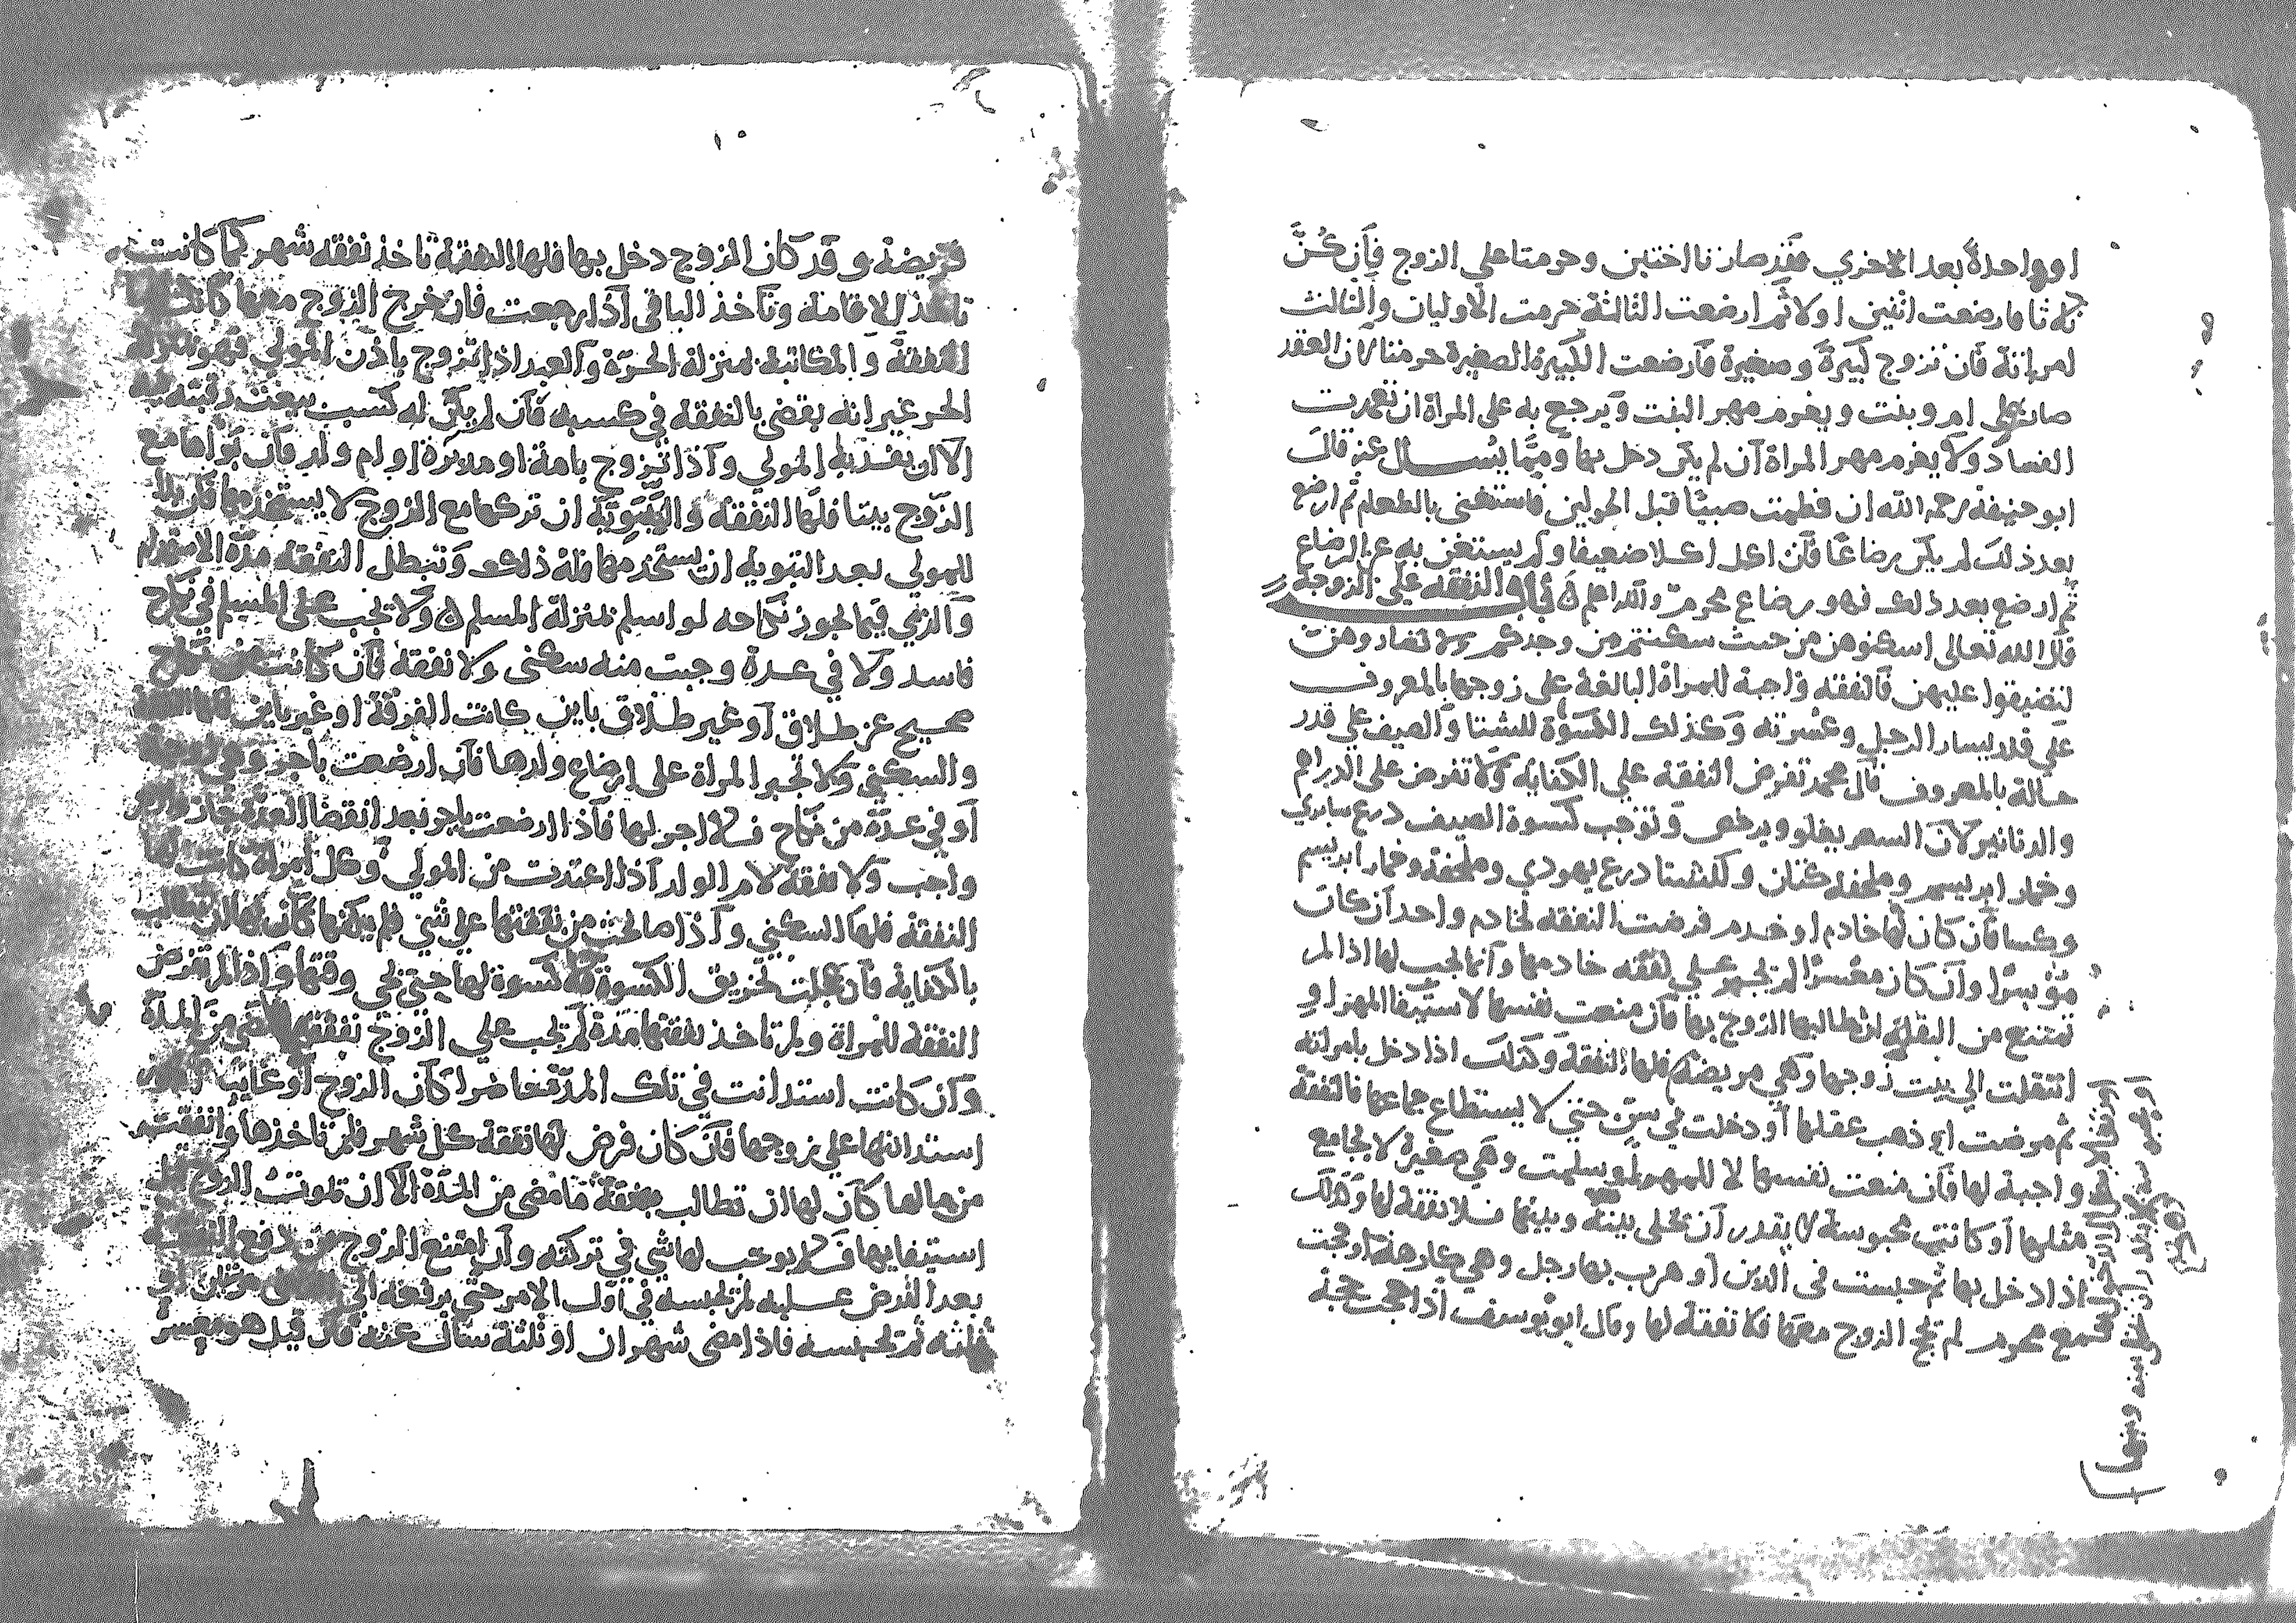 او واحدة بعد الاخري فقد صارتا اختين وحرمتا علي الزوج فإن كُنَّ
ثلاثا فارضعت اثنين اولا ثم ارضعت الثالثة حرمت الاوليان والثالث
امراته فان تزوج كبيرة وصغيرة فارضعت الكبيرة الصغيرة حرمتا لان العقد
صار علي ام وبنت ويغرم مهر البنت ويرجع به على المراة ان تعمدت
الفساد ولا يغرم مهر المراة ان لم يكن دخل بها ومما يُسال عنه قال
ابو حنيفة رحمه الله ان فطمت صبيًا قبل الحولين فاستغنى بالطعام ثم ارضع
بعد ذلك لم يكن رضاعًا فان اكل اكلا ضعيفا ولم يستغن به عن الرضاع
ثم ارضع بعد ذلك فهو رضاع محرم والله اعلم باب النفقه علي الزوجة
قال الله تعالى اسكنوهن من حيث سكنتم من وجدكم ولا تضاروهن
لتضيقوا عليهن فالنفقه واجبة للمراة البالغة على زوجها بالمعروف
علي قدر يسار الرجل وعسرته وكذلك الكسوة للشتا والصيف علي قدر
حاله بالمعروف قال محمد تفرض النفقة علي الكفاية ولا تفرض على الدراهم
والدنانير لان السعر يغلو ويرخص وتوجب كسوة الصيف درع سابري
وخمار ابريسم وملحفة كتان وللشتا درع يهودي وملحفة وخمار ابريسم
وكسا فان كان لها خادم او خدم فرضت النفقه لخادم واحد ان كان
موسرًا وان كان معسرًا لم يجبر علي نفقه خادمها وانما يجب لها اذا لم
تمتنع من النقلة ان طالبها الزوج بها فان منعت نفسها لاستيفا المهر او
انتقلت الي بيت زوجها وهي مريضة فلها النفقة وكذلك اذا دخل بامراته
ثم مرضت او ذهب عقلها او دخلت في سن حتى لا يستطاع جماعها فالنفقة
واجبة لها فان منعت نفسها لا للمهر او سلمت وهي صغيرة لا يجامع
مثلها او كانت محبوسة لا يقدر ان يخلى بينه وبينها فلا نفقة لها وكذلك
اذا دخل بها ثم حبست في الدين او هرب بها رجل وهي كارهة او حجت
مع محرم لم يحج الزوج معها فلا نفقة لها وقال ابو يوسف اذا حجت حجة
فريضة وقد كان الزوج دخل بها فلها النفقة تاخذ نفقه شهر كما كانت
تاخذ للاقامة وتاخذ الباقي اذا رجعت فان خرج الزوج معها كانت
النفقة والمكاتبة بمنزلة الحرة والعبد اذا تزوج باذن المولي فهو بمنزلة
الحر غير انه يقضى بالنفقة في كسبه فان لم يكن له كسب بيعت رقبته فيه
الا ان يفديه المولي واذا تزوج بامة او مدبرة او ام ولد فان بواها مع
الزوج بيتا فلها النفقه والتبوية ان تركها مع الزوج لا يستخدمها فان بدا
للمولي بعد التبوية ان يستخدمها فله ذلك وتبطل النفقه مدة الاستخدام
والذمي فيما يجوز نكاحه لو اسلم بمنزلة المسلم ولا تجب على المسلم في نكاح
فاسد ولا في عدة وجبت منه سكنى ولا نفقة فان كانت من نكاح
صحيح عن طلاق او غير طلاق باين كانت الفرقة او غير باين
والسكني ولا تجبر المراة على ارضاع ولدها فان ارضعت باجر وهي زوجة
او في عدة من نكاح فلا اجر لها فاذا ارضعت باجر بعد انقضا العدة جاز
واجب ولا نفقة لام الولد اذا اعتدت من المولي وكل امراة كانت لها
النفقة فلها السكني واذا صالحت من نفقتها علي شي فلم يكفها كان لها ان تطالب
بالكفاية فان عجلت تخريق الكسوة فلا كسوة لها حتي يجي وقتها واذا لم تفرض
النفقة للمراة ولم تاخذ نفقتها مدة لم يجب علي الزوج نفقتها لما مضى من المدة
وان كانت استدانت في تلك المدة حاضرا كان الزوج او غايبا
استدانتها علي زوجها فان كان فرض لها نفقة كل شهر فلم تاخذها وانفقت
من مالها كان لها ان تطالب بنفقة ما مضى من المدة الا ان يموت الزوج قبل
استيفايها فلا يوجب لها شي في تركته وان امتنع الزوج من دفع النفقة
بعد الفرض عليه لم يحبسه في اول الامر حتي يرفعه الي القاضي مرتين او
ثلثه ثم يحبسه فاذا مضى شهران او ثلثة سال عنه فان قيل هو معسر